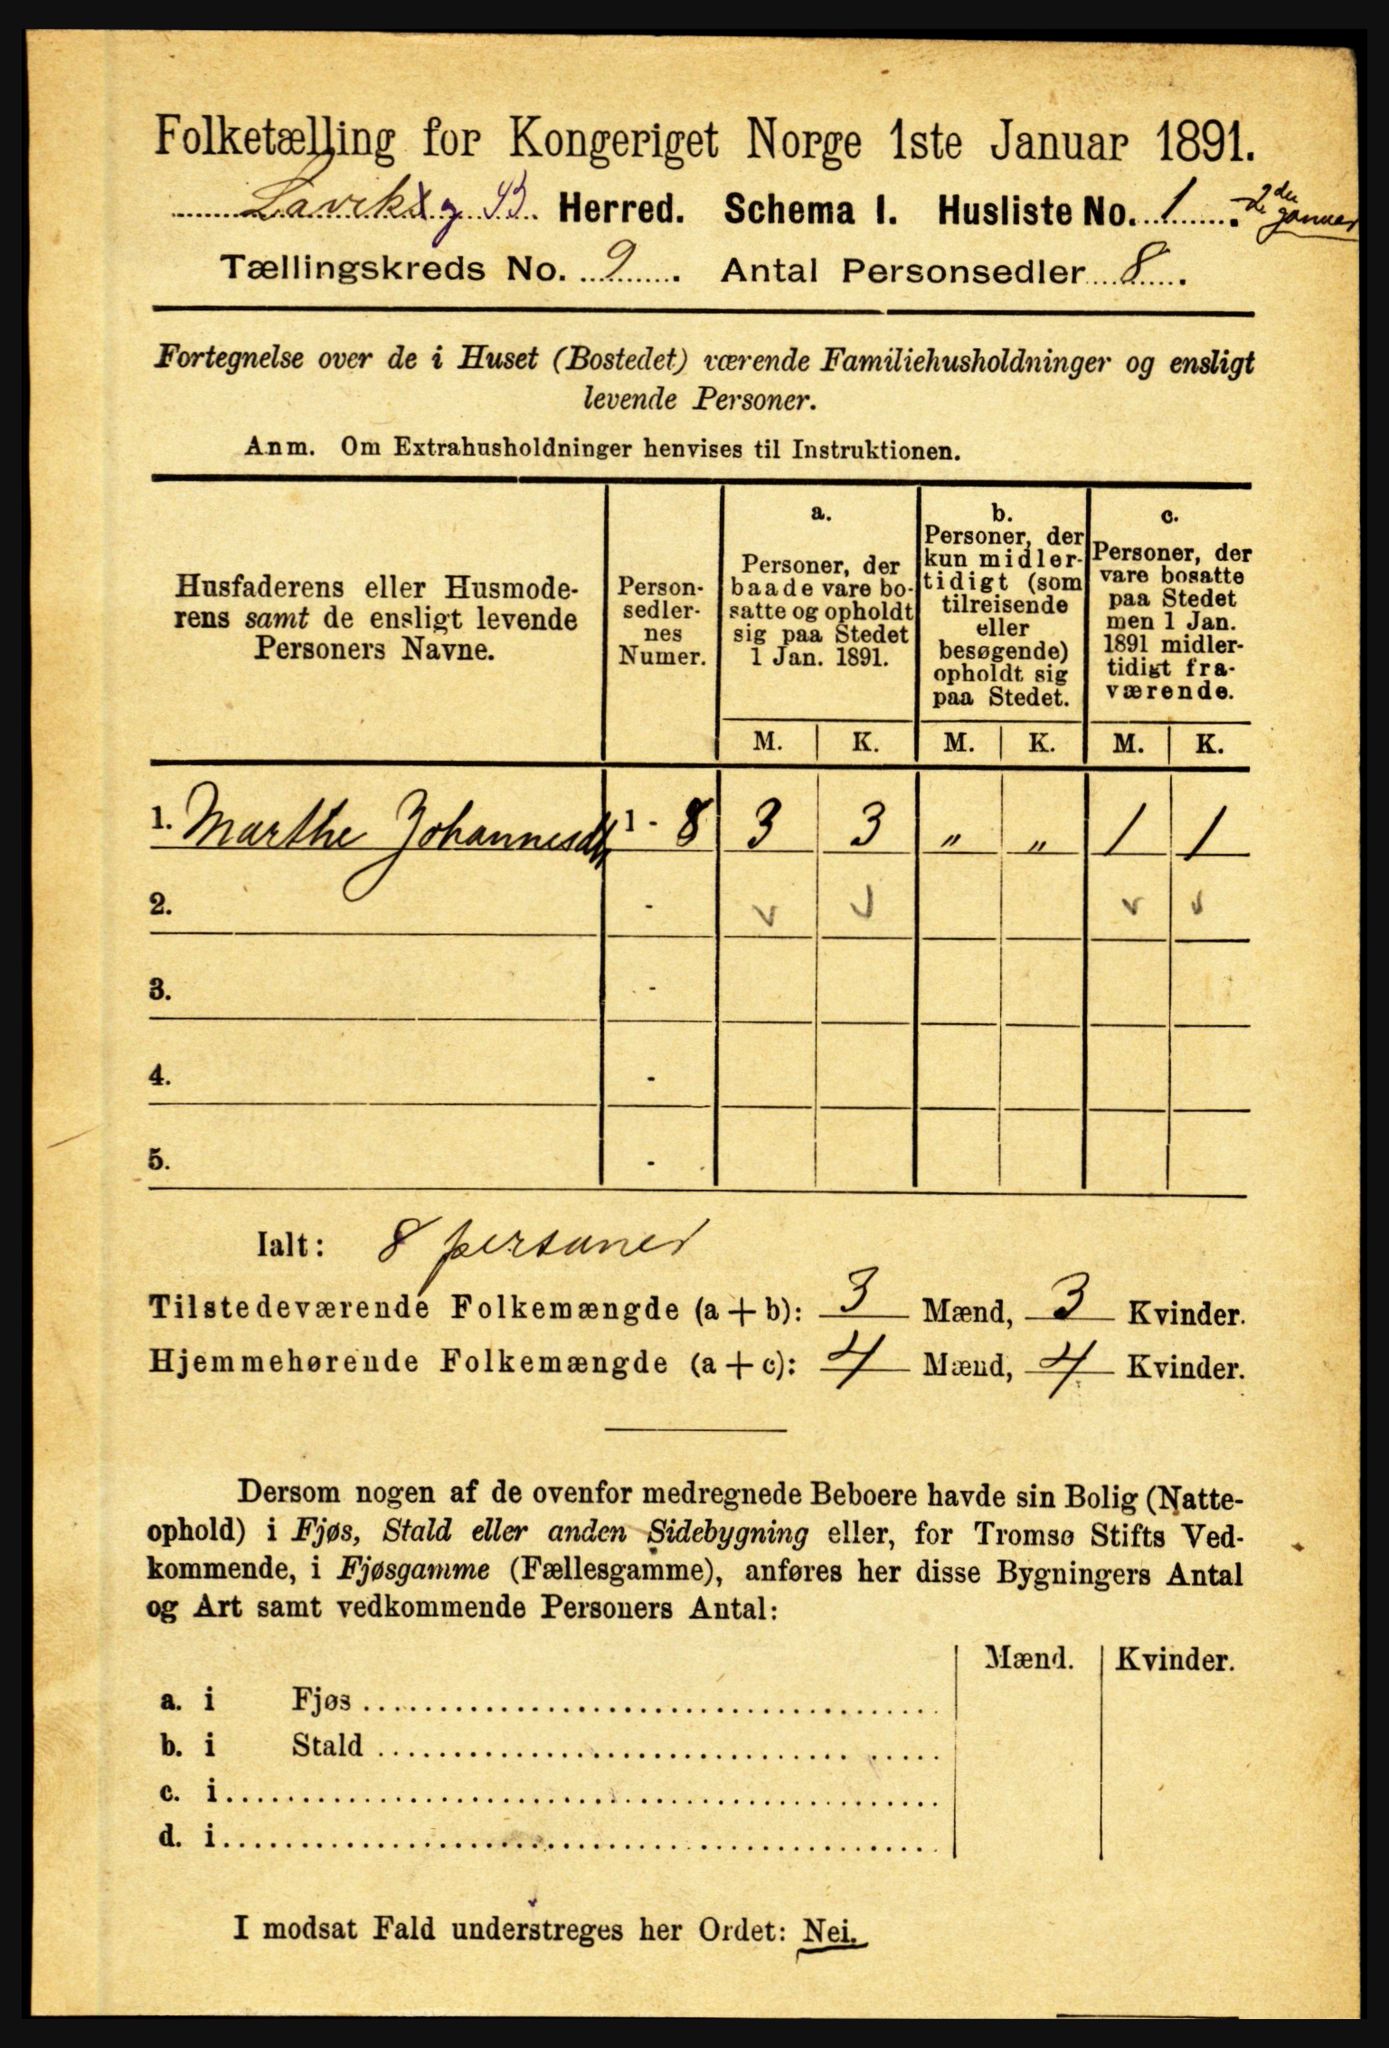 Folketælling for Kongeriget Norge 1ste Januar 1891.
Lavik og B. Herred. Schema I. Husliste No. 1. 2den Januar
Tællingskreds No. 9. Antal Personsedler 8.
Fortegnelse over de i Huset (Bostedet) værende Familiehusholdninger og ensligt
levende Personer.
Anm. Om Extrahusholdninger henvises til Instruktionen.
Husfaderens eller Husmode-
rens samt de ensligt levende
Personers Navne.
Person-
sedler-
nes
Numer.
a.
Personer, der
baade vare bo-
satte og opholdt
sig paa Stedet
1 Jan. 1891.
b.
Personer, der
kun midler-
tidigt (som
tilreisende
eller
besøgende)
opholdt sig
paa Stedet.
c.
Personer, der
vare bosatte
paa Stedet
men 1 Jan.
1891 midler-
tidigt fra-
værende.
M. K. M. K. M. K.
1. Marthe Johannesdtr 1 - 8 3 3 „ „ 1 1
2. -
3. -
4. -
5. -
Ialt: 8 personer
Tilstedeværende Folkemængde (a + b): 3 Mænd, 3 Kvinder.
Hjemmehørende Folkemængde (a + c): 4 Mænd, 4 Kvinder.
Dersom nogen af de ovenfor medregnede Beboere havde sin Bolig (Natte-
ophold) i Fjøs, Stald eller anden Sidebygning eller, for Tromsø Stifts Ved-
kommende, i Fjøsgamme (Fællesgamme), anføres her disse Bygningers Antal
og Art samt vedkommende Personers Antal:
Mænd. Kvinder.
a. i Fjøs
b. i Stald
c. i
d. i
I modsat Fald understreges her Ordet: Nei.